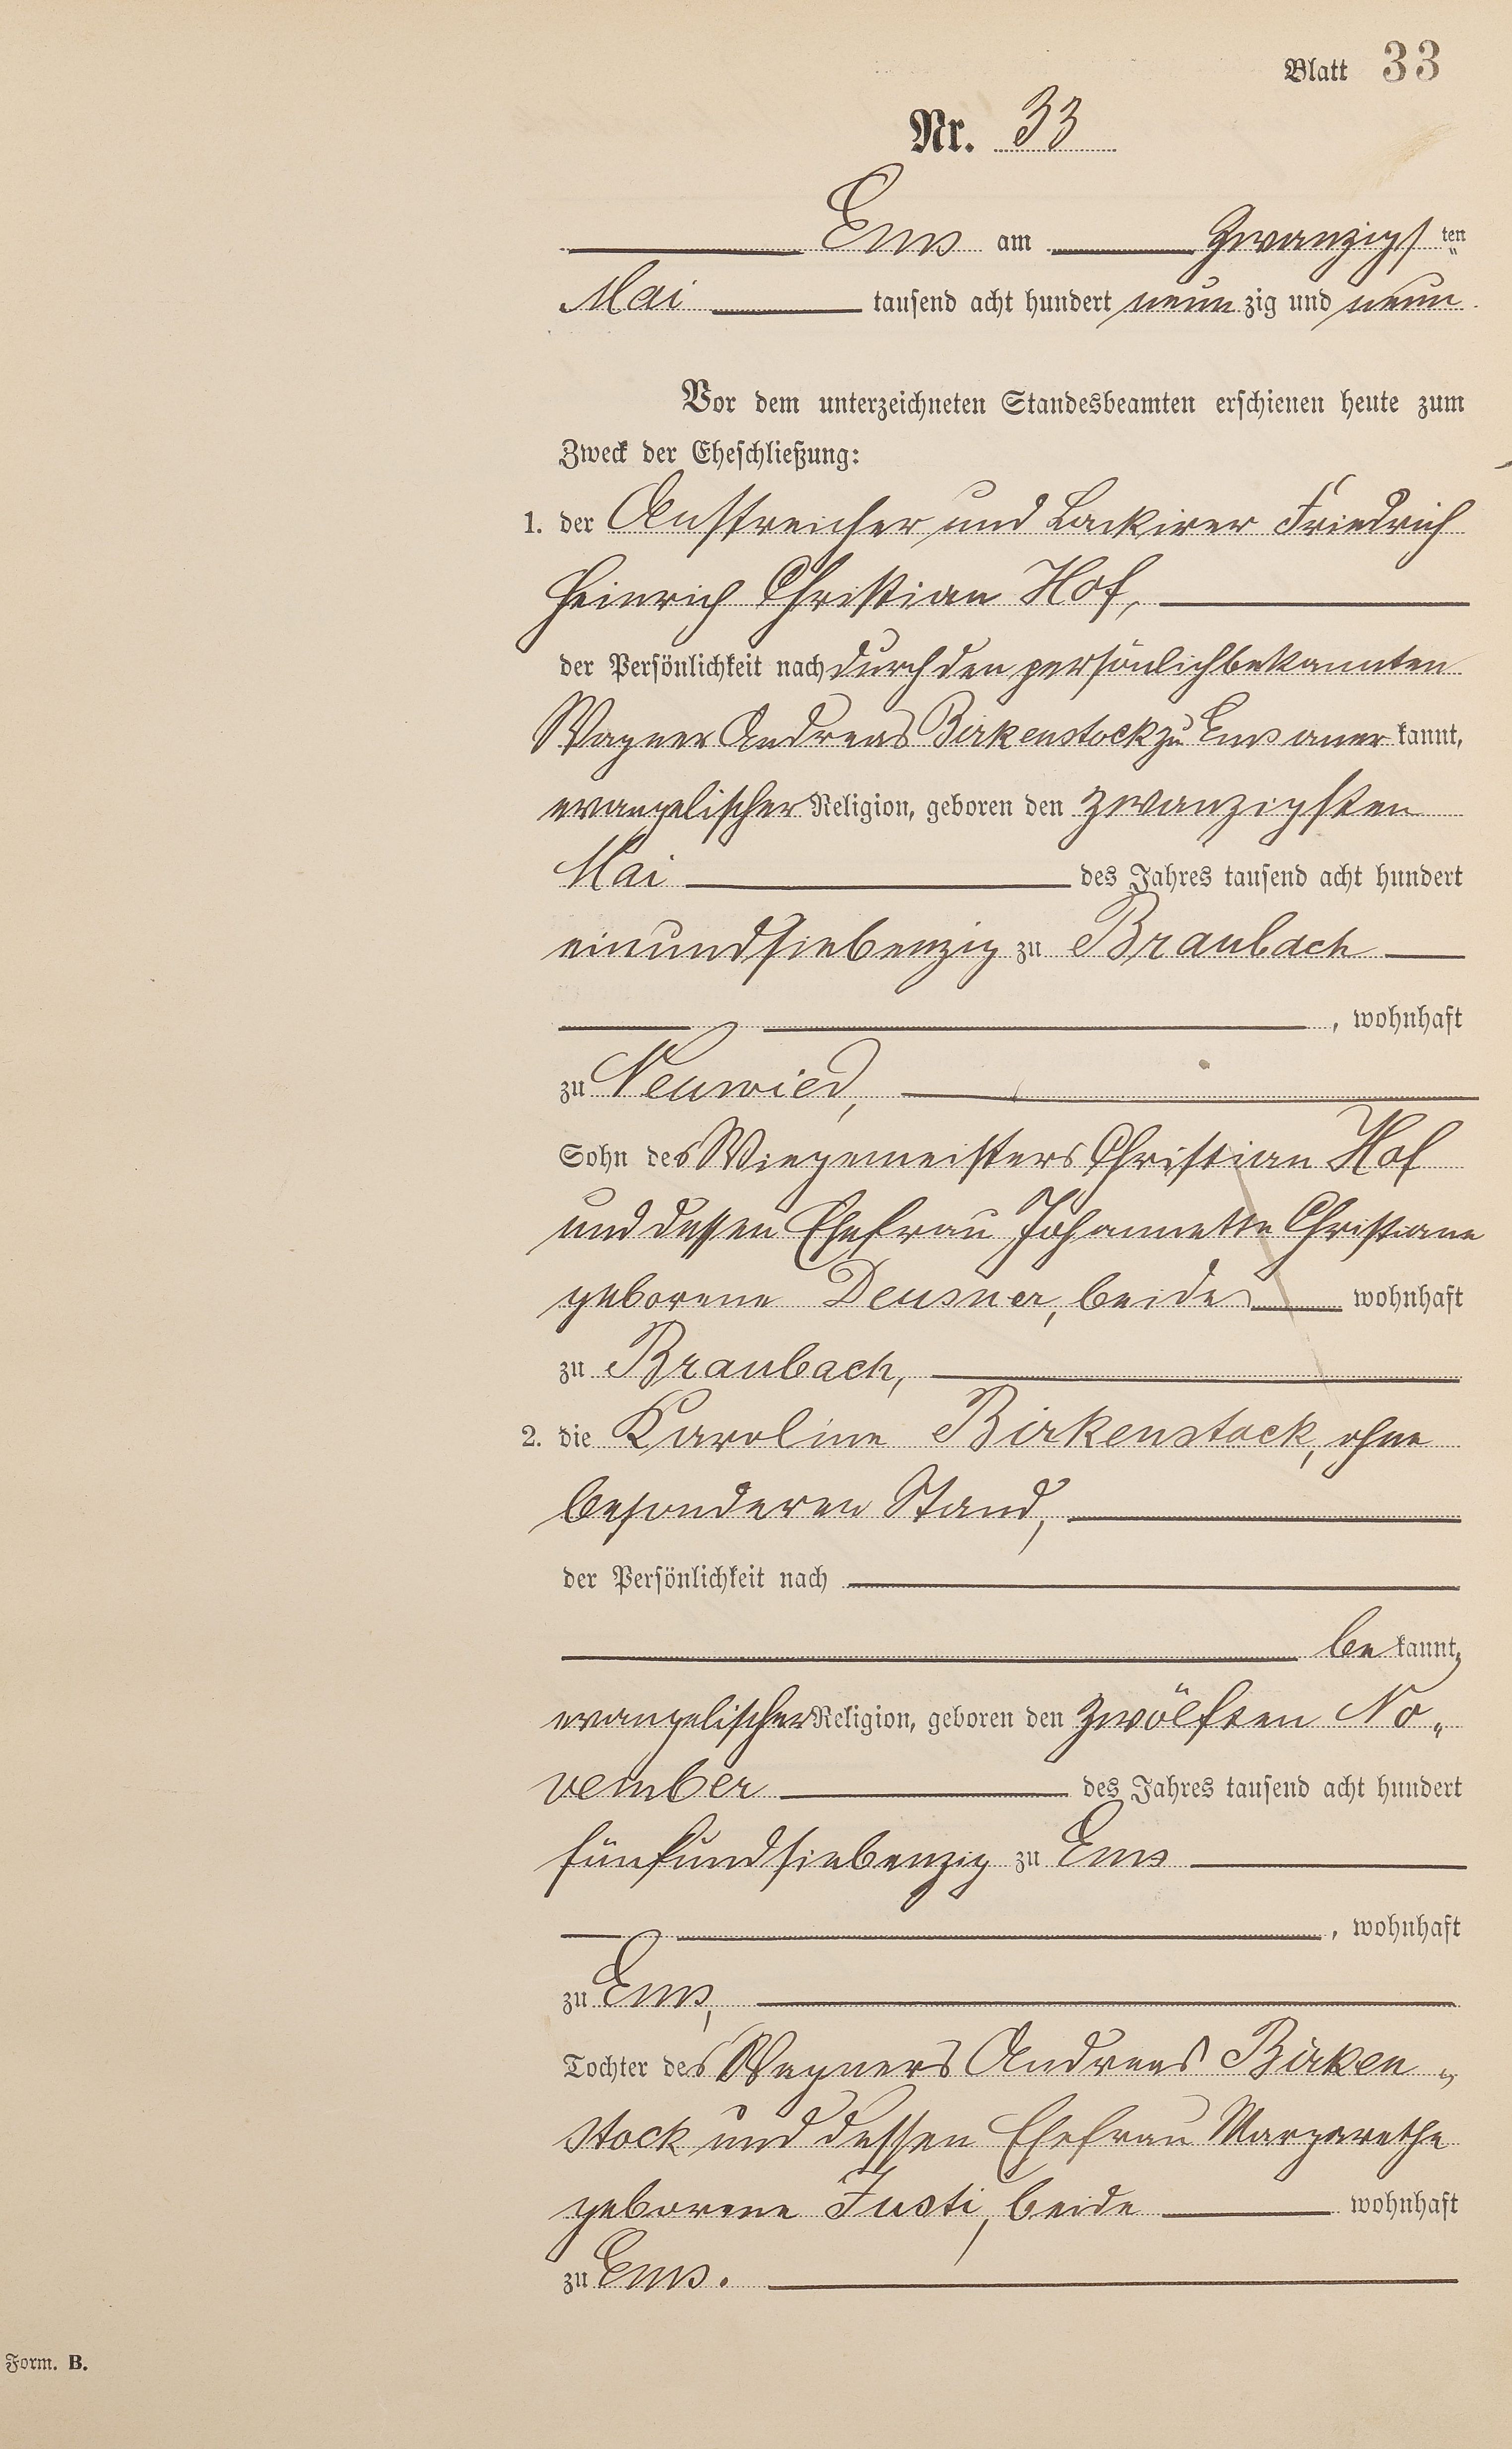 Blatt 33
Nr. 33
Ems am Zwanzigsten
Mai tausend acht hundert neunzig und neun.
Vor dem unterzeichneten Standesbeamten erschienen heute zum
Zweck der Eheschließung:
1. der Anstreicher und Lackirer Friedrich
Heinrich Christian Hof,
der Persönlichkeit nach durch den persönlich bekannten
Wagner Andreas Birkenstock zu Ems anerkannt,
evangelischer Religion, geboren den zwanzigsten
Mai des Jahres tausend acht hundert
einundsiebenzig zu Braubach
, wohnhaft
zu Neuwied,
Sohn des Wiegemeisters Christian Hof
und dessen Ehefrau Johannette Christiane
geborene Deusner, beide wohnhaft
zu Braubach,
2. die Karoline Birkenstock, ohne
besonderen Stand,
der Persönlichkeit nach
bekannt,
evangelischer Religion, geboren den zwölften No„
vember des Jahres tausend acht hundert
fünfundsiebenzig zu Ems
, wohnhaft
zu Ems,
Tochter des Wagners Andreas Birken„
stock und dessen Ehefrau Margarethe
geborene Justi, beide wohnhaft
zu Ems.
Form. B.